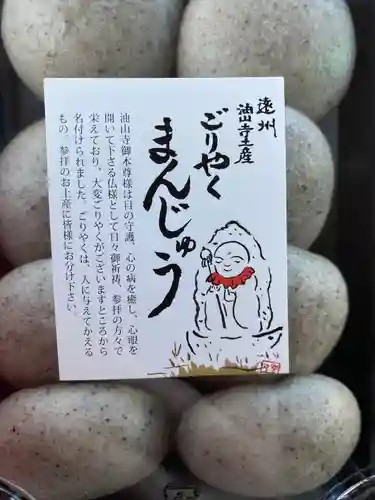 遠州
油山寺土産
ごりやく
まんじゅう
油山寺御本尊様は目の守護、心の病を癒し、心眼を
開いて下さる仏様として日々御祈祷、参拝の方々で
栄えており、大変ごりやくがございますところから
名付けられました。ごりやくは、人に与えてかえる
もの。参拝のお土産に皆様にお分け下さい。